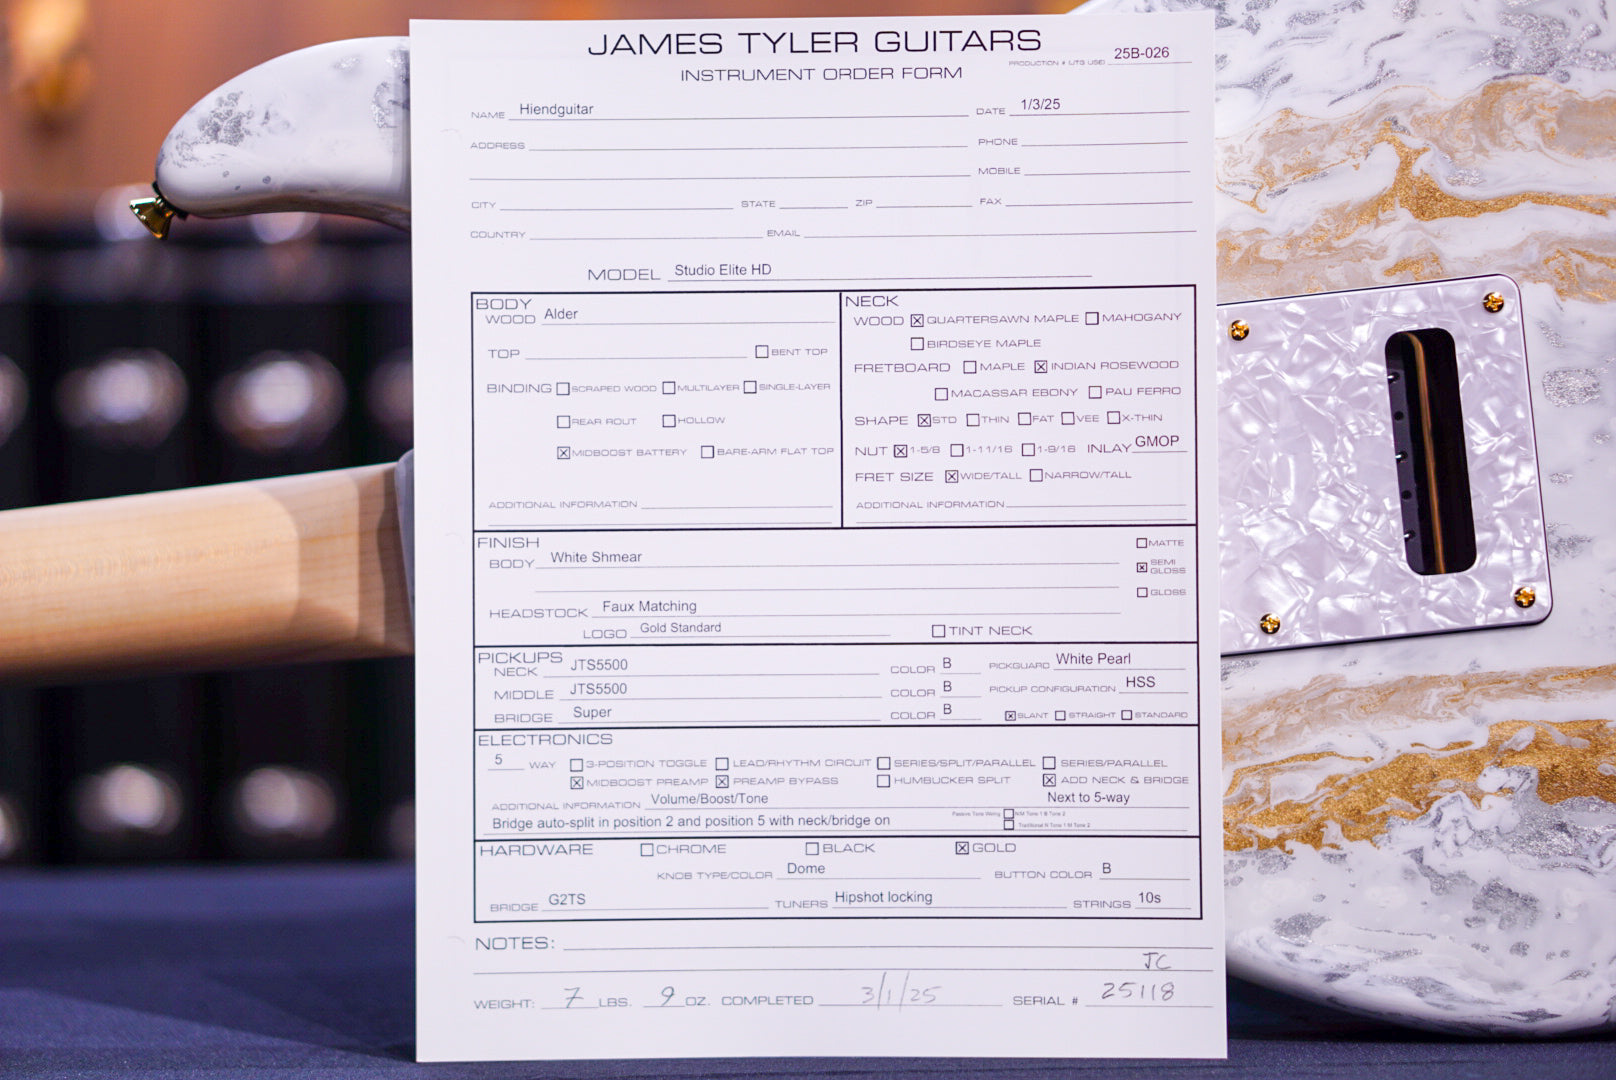 JAMES TYLER GUITARS
INSTRUMENT ORDER FORM
PRODUCTION # (JTG USE) 25B-026
NAME Hiendguitar DATE 1/3/25
ADDRESS PHONE
MOBILE
CITY STATE ZIP FAX
COUNTRY EMAIL
MODEL Studio Elite HD
BODY
WOOD Alder
TOP ☐ BENT TOP
BINDING ☐ SCRAPED WOOD ☐ MULTILAYER ☐ SINGLE-LAYER
☐ REAR ROUT ☐ HOLLOW
☒ MIDBOOST BATTERY ☐ BARE-ARM FLAT TOP
ADDITIONAL INFORMATION
NECK
WOOD ☒ QUARTERSAWN MAPLE ☐ MAHOGANY
☐ BIRDSEYE MAPLE
FRETBOARD ☐ MAPLE ☒ INDIAN ROSEWOOD
☐ MACASSAR EBONY ☐ PAU FERRO
SHAPE ☒ STD ☐ THIN ☐ FAT ☐ VEE ☐ X-THIN
NUT ☒ 1-5/8 ☐ 1-11/16 ☐ 1-9/16 INLAY GMOP
FRET SIZE ☒ WIDE/TALL ☐ NARROW/TALL
ADDITIONAL INFORMATION
FINISH
BODY White Shmear
☐ MATTE
☒ SEMI GLOSS
☐ GLOSS
HEADSTOCK Faux Matching
LOGO Gold Standard ☐ TINT NECK
PICKUPS
NECK JTS5500 COLOR B PICKGUARD White Pearl
MIDDLE JTS5500 COLOR B PICKUP CONFIGURATION HSS
BRIDGE Super COLOR B ☒ SLANT ☐ STRAIGHT ☐ STANDARD
ELECTRONICS
5 WAY ☐ 3-POSITION TOGGLE ☐ LEAD/RHYTHM CIRCUIT ☐ SERIES/SPLIT/PARALLEL ☐ SERIES/PARALLEL
☒ MIDBOOST PREAMP ☒ PREAMP BYPASS ☐ HUMBUCKER SPLIT ☒ ADD NECK & BRIDGE
ADDITIONAL INFORMATION Volume/Boost/Tone Next to 5-way
Passive Tone Wiring ☐ N/M Tone 1 B Tone 2
Bridge auto-split in position 2 and position 5 with neck/bridge on ☐ Traditional N Tone 1 M Tone 2
HARDWARE ☐ CHROME ☐ BLACK ☒ GOLD
KNOB TYPE/COLOR Dome BUTTON COLOR B
BRIDGE G2TS TUNERS Hipshot locking STRINGS 10s
NOTES:
JC
WEIGHT: 7 LBS. 9 OZ. COMPLETED 3/1/25 SERIAL # 25118